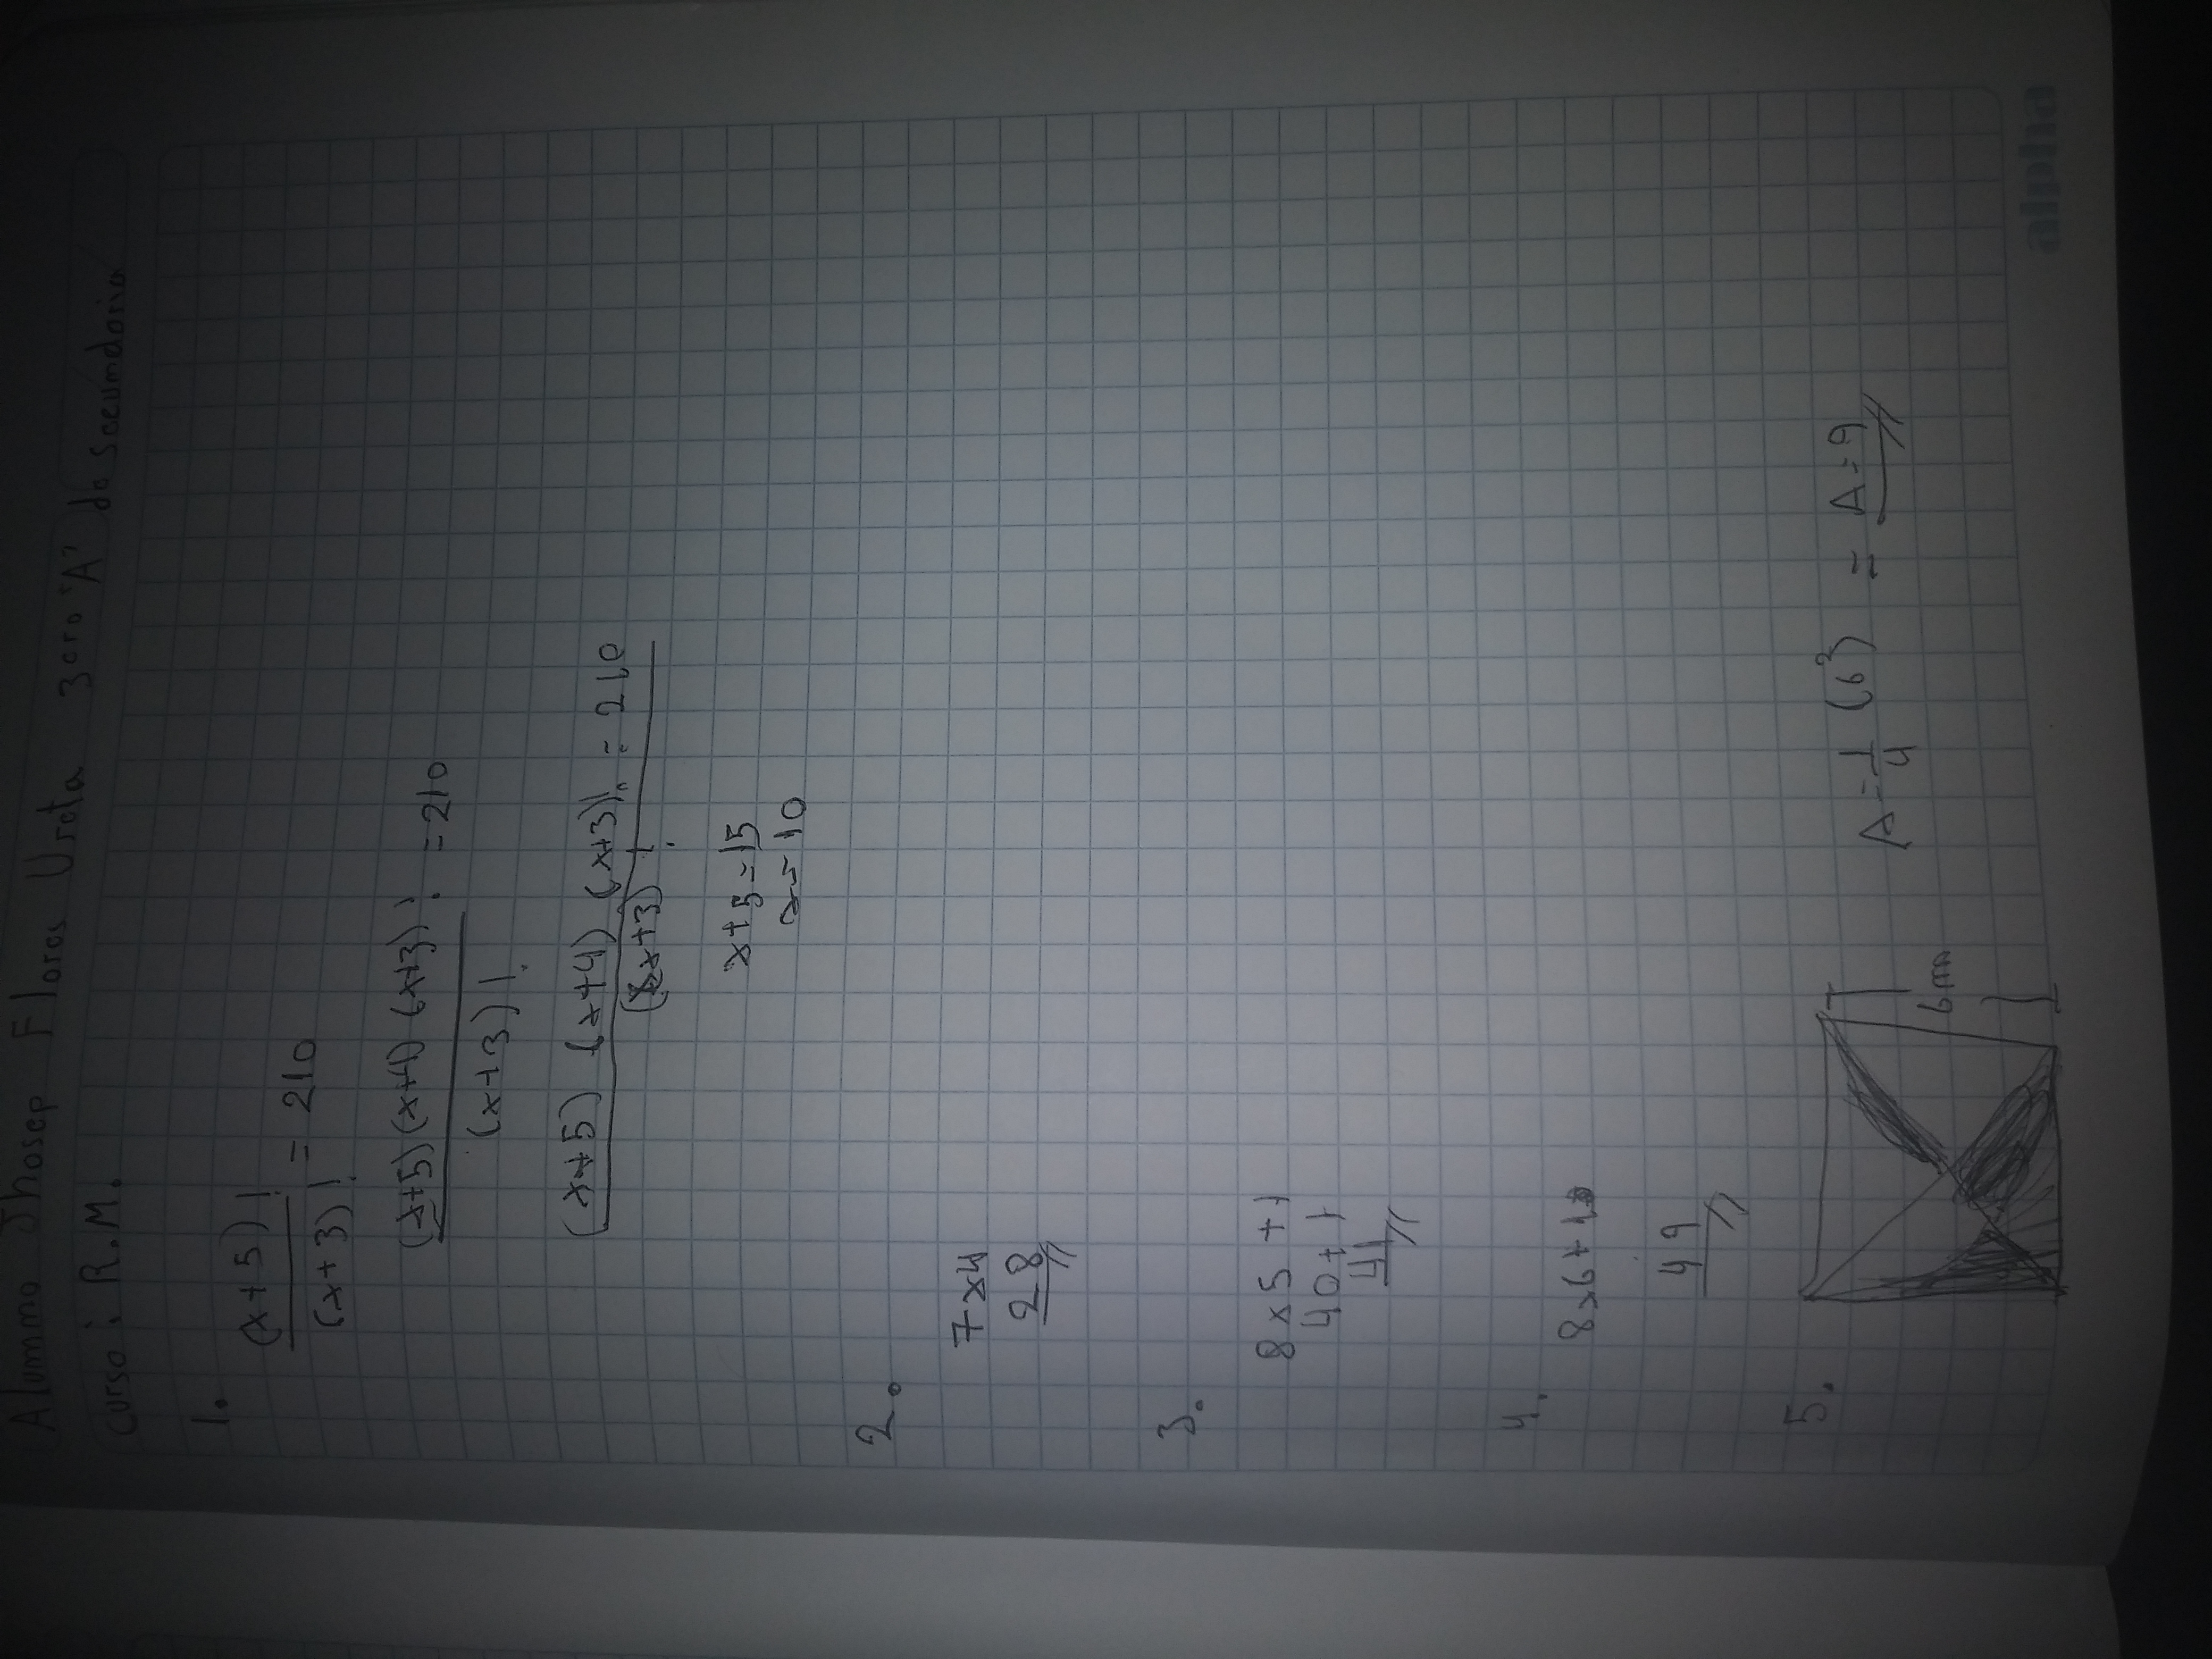 Alummo Jhosep Flores Ureta 3ero "A" de secumdaria
curso: R.M.
1.
(x+5)!
(x+3)! = 210
(x+5)(x+4)(x+3)! = 210
(x+3)!
(x+5) (x+4) (x+3)! = 210
(x+3)!
x+5=15
x=10
2.
7x4
28
3.
8x5+1
40+1
41
4.
8x6+1
49
5.
A=1/4 (6²) = A=9
6m
alpha